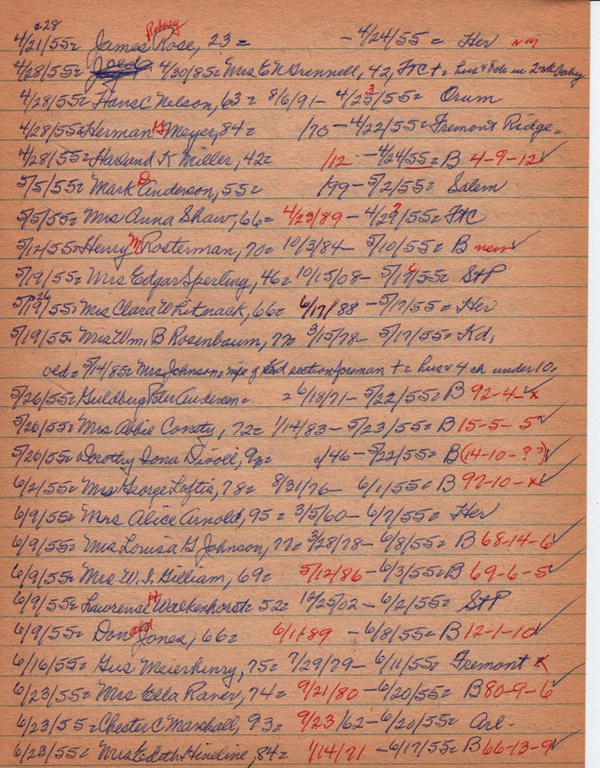 +28 Rodney
4/21/55= James Rose, 23 = - 4/24/55 = Her nm
4/28/55= 4/30/85= Mrs E N Grennell, 42, FtC + = hus & bab in 2nd baby
4/28/55= Hans C Nelson, 63 = 8/6/91 - 4/23/55 = Orum
4/28/55= Herman H Meyer, 84 = /70 - 4/22/55 = Fremont Ridge.
4/28/55= Harland K Miller, 42 = /12 - 4/24/55 = B 4-9-12 ✓
5/5/55= Mark O Anderson, 55 = /99 - 5/2/55 = Salem
5/5/55= Mrs Anna Shaw, 66 = 4/23/89 - 4/29?/55 = FtC
5/12/55= Henry M Rosterman, 70 = 10/3/84 - 5/10/55 = B new ✓
5/19/55= Mrs Edgar Sperling, 46 = 10/15/08 - 5/ /55 = StP
5/19/55= Mrs Clara Whitnack, 66 = 6/17/88 - 5/17/55 = Her
5/19/55= Mrs Wm. B Rosenbaum, 77 = 3/15/78 - 5/17/55 = Kd.
old = 5/14/85 = Mrs Johnson = wife of Kd section foreman + = hus & 4 ch under 10.
5/26/55= Guldborg Peter Andersen = = 6/18/71 - 5/22/55 = B 92-4-x ✓
5/26/55= Mrs Abbie Conety, 72 = 1/14/83 - 5/23/55 = B 15-5-5 ✓
5/26/55= Dorothy Iona Divoll, 9 = /46 - 5/22/55 = B (14-10-??) ✓
6/2/55= Mrs George Loftis, 78 = 8/31/76 - 6/1/55 = B 97-10-x ✓
6/9/55= Mrs Alice Arnold, 95 = 3/5/60 - 6/7/55 = Her
6/9/55= Mrs Louisa G Johnson, 77 = 3/28/78 - 6/8/55 = B 68-14-6 ✓
6/9/55= Mrs W. I. Gilliam, 69 = 5/12/86 - 6/3/55 = B 69-6-5 ✓
6/9/55= Lawrence H Walkenhorst = 52 = 12/25/02 - 6/2/55 = StP
6/9/55= Donald Jones, 66 = 6/1/89 - 6/8/55 = B 12-1-10 ✓
6/16/55= Gus Meierhenry, 75 = 7/29/79 - 6/11/55 = Fremont x
6/23/55= Mrs Ella Raver, 74 = 9/21/80 - 6/20/55 = B 80-9-6 ✓
6/23/55= Chester C Marshall, 93 = 9/23/62 - 6/20/55 = Arl -
6/23/55= Mrs Edith Hineline, 84 = 1/14/71 - 6/17/55 = B 66-13-9 ✓